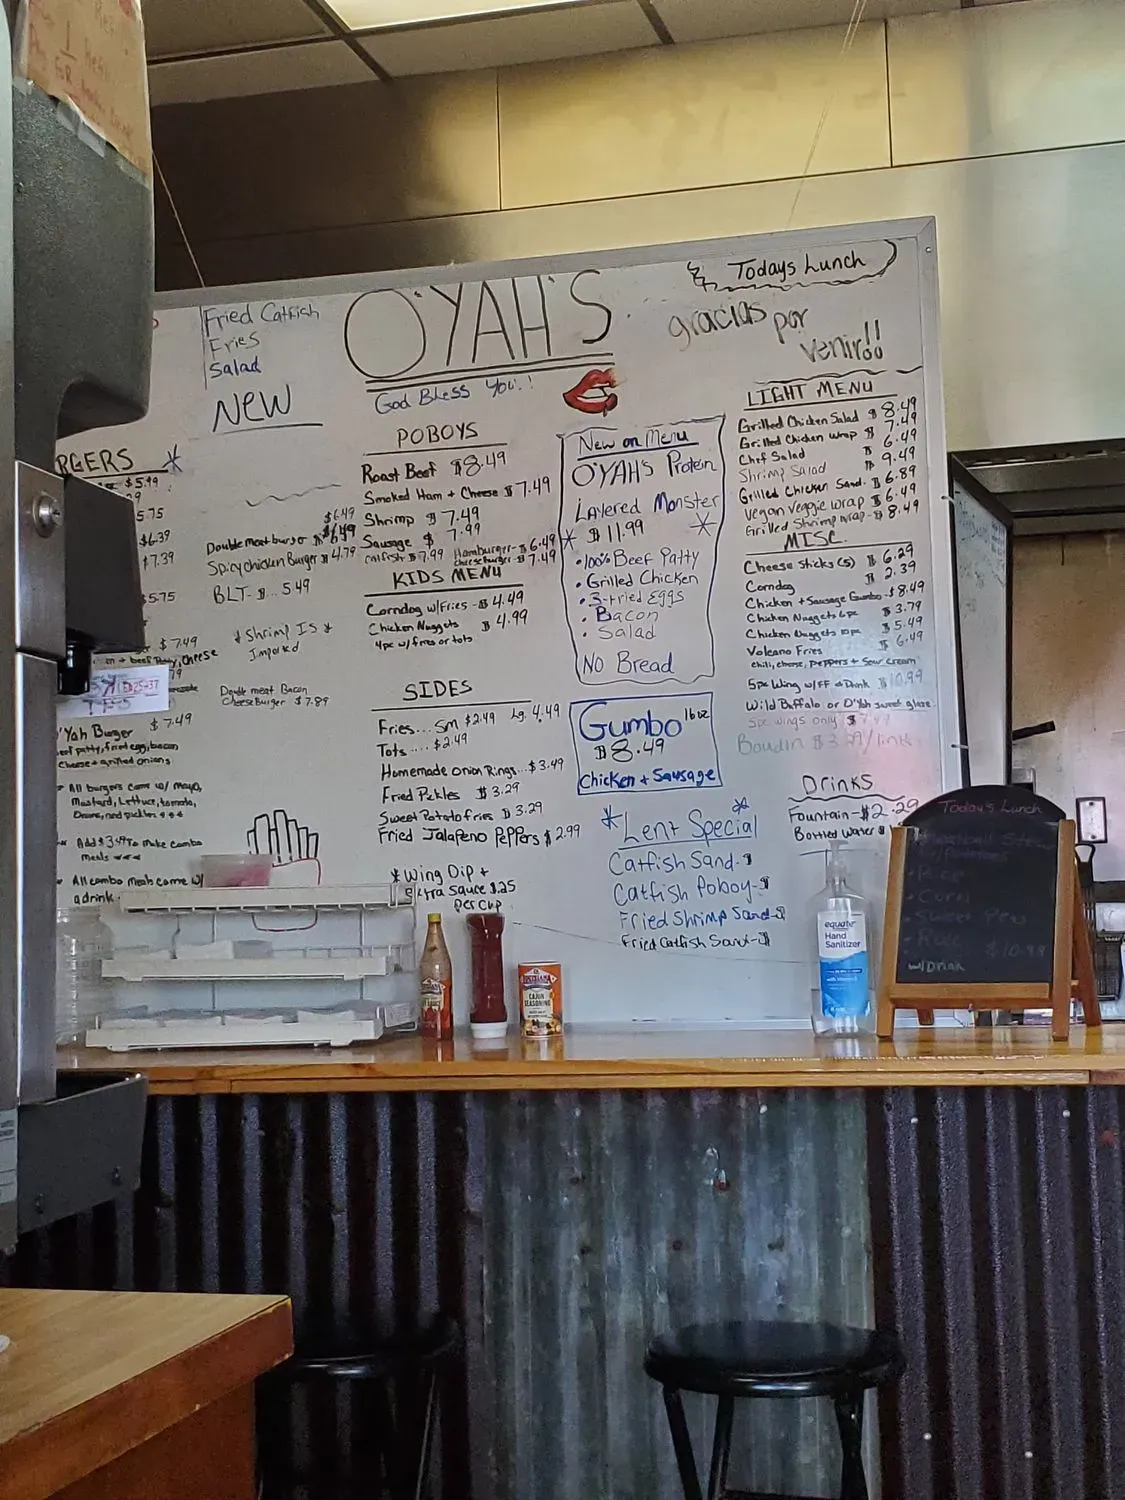 Todays Lunch
O'YAH'S
gracias por
venir!!
God Bless You!!
Fried Catfish
Fries
Salad
NEW
RGERS
$5.99
5.75
$6.39
$7.39
$5.75
$7.49
$7.49
O'Yah Burger
Beef patty, fried egg, bacon
cheese + grilled onions
All burgers come w/ mayo,
Mustard, Lettuce, tomato,
Onions, and pickles
Add $3.49 To make combo
meals
All combo meals come w/
a drink
$6.49
Double meat burger
Spicy chicken Burger $4.79
BLT- $... 5.49
* Shrimp Is *
Imported
Double meat Bacon
Cheese Burger $7.89
POBOYS
Roast Beef $8.49
Smoked Ham + Cheese $7.49
Shrimp $7.49
Sausage $7.99
Catfish $7.99
Hamburger- $6.49
Cheeseburger- $7.49
KIDS MENU
Corndog w/Fries - $4.49
Chicken Nuggets $4.99
4pc w/ fries or tots
SIDES
Fries... Sm $2.49 Lg. 4.49
Tots.... $2.49
Homemade Onion Rings...$3.49
Fried Pickles $3.29
Sweet Potato fries $3.29
Fried Jalapeno Peppers $2.99
* Wing Dip +
Extra Sauce $.25
per cup
New on Menu
O'YAH'S Protein
Layered Monster
$11.99
• 100% Beef Patty
• Grilled Chicken
• 3-Fried Eggs
• Bacon
• Salad
NO Bread
Gumbo 16oz
$8.49
Chicken + Sausage
* Lent Special *
Catfish Sand-$
Catfish Poboy-$
Fried Shrimp Sand-$
Fried Catfish Sand-$
LIGHT MENU
Grilled Chicken Salad $8.49
Grilled Chicken Wrap $7.49
Chef Salad $6.49
Shrimp Salad $9.49
Grilled Chicken Sand. $6.89
Vegan Veggie Wrap $6.49
Grilled Shrimp Wrap- $8.49
MISC.
Cheese Sticks (5) $6.29
Corndog $2.39
Chicken + Sausage Gumbo- $8.49
Chicken Nuggets 6pc $3.79
Chicken Nuggets 10pc $5.49
Volcano Fries $6.49
chili, cheese, peppers + Sour Cream
5pc Wing w/ FF + Drink $10.99
Wild Buffalo or O'Yah sweet glaze
5pc wings only $7.49
Boudin $3.29/link
Drinks
Fountain- $2.29
Bottled Water $
equate
Hand
Sanitizer
LOUISIANA
CAJUN
SEASONING
Today's Lunch
Rice
Corn
Sweet Peas
Roll $10.99
w/Drink